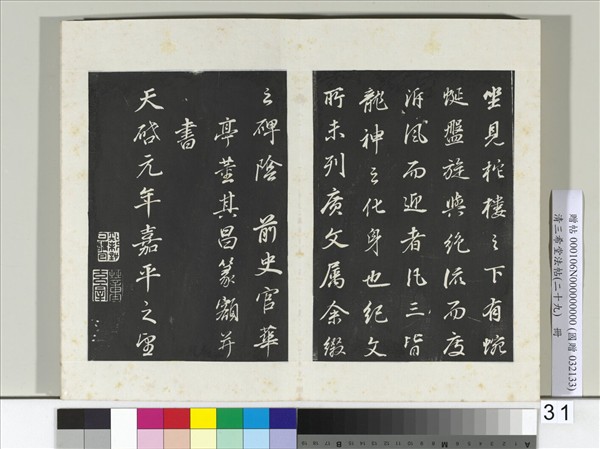 坐見柁樓之下有蜿
蜒盤旋與絶流而度
泝風而迎者凡三皆
龍神之化身也紀文
所未列廣文屬余綴
之碑陰 前史官華
亭董其昌篆額并
書
天啓元年嘉平之望
贈帖 000106N000000000 (國贈 032133)
清三希堂法帖(二十九) 冊
31